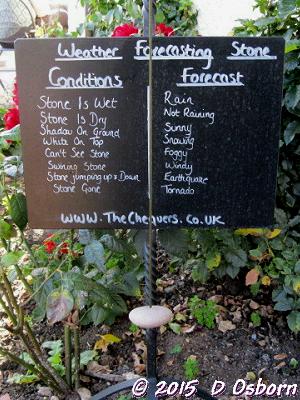 Weather Forecasting Stone
Conditions Forecast
Stone Is Wet Rain
Stone Is Dry Not Raining
Shadow On Ground Sunny
White On Top Snowing
Can't See Stone Foggy
Swining Stone Windy
Stone jumping up & Down Earthquake
Stone Gone Tornado
www.TheChequers.co.uk
© 2015 D Osborn